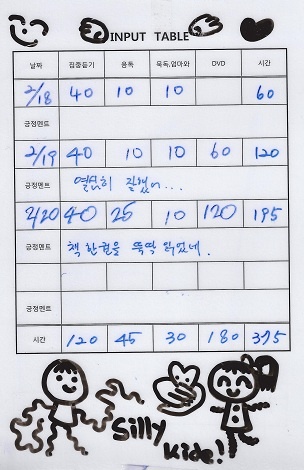 INPUT TABLE
날짜 집중듣기 음독 묵독,엄마와 DVD 시간
2/18 40 10 10 60
긍정멘트
2/19 40 10 10 60 120
긍정멘트 열심히 잘했어...
2/20 40 25 10 120 195
긍정멘트 책 한권을 뚝딱 읽었네.
긍정멘트
시간 120 45 30 180 375
Silly
Kide!